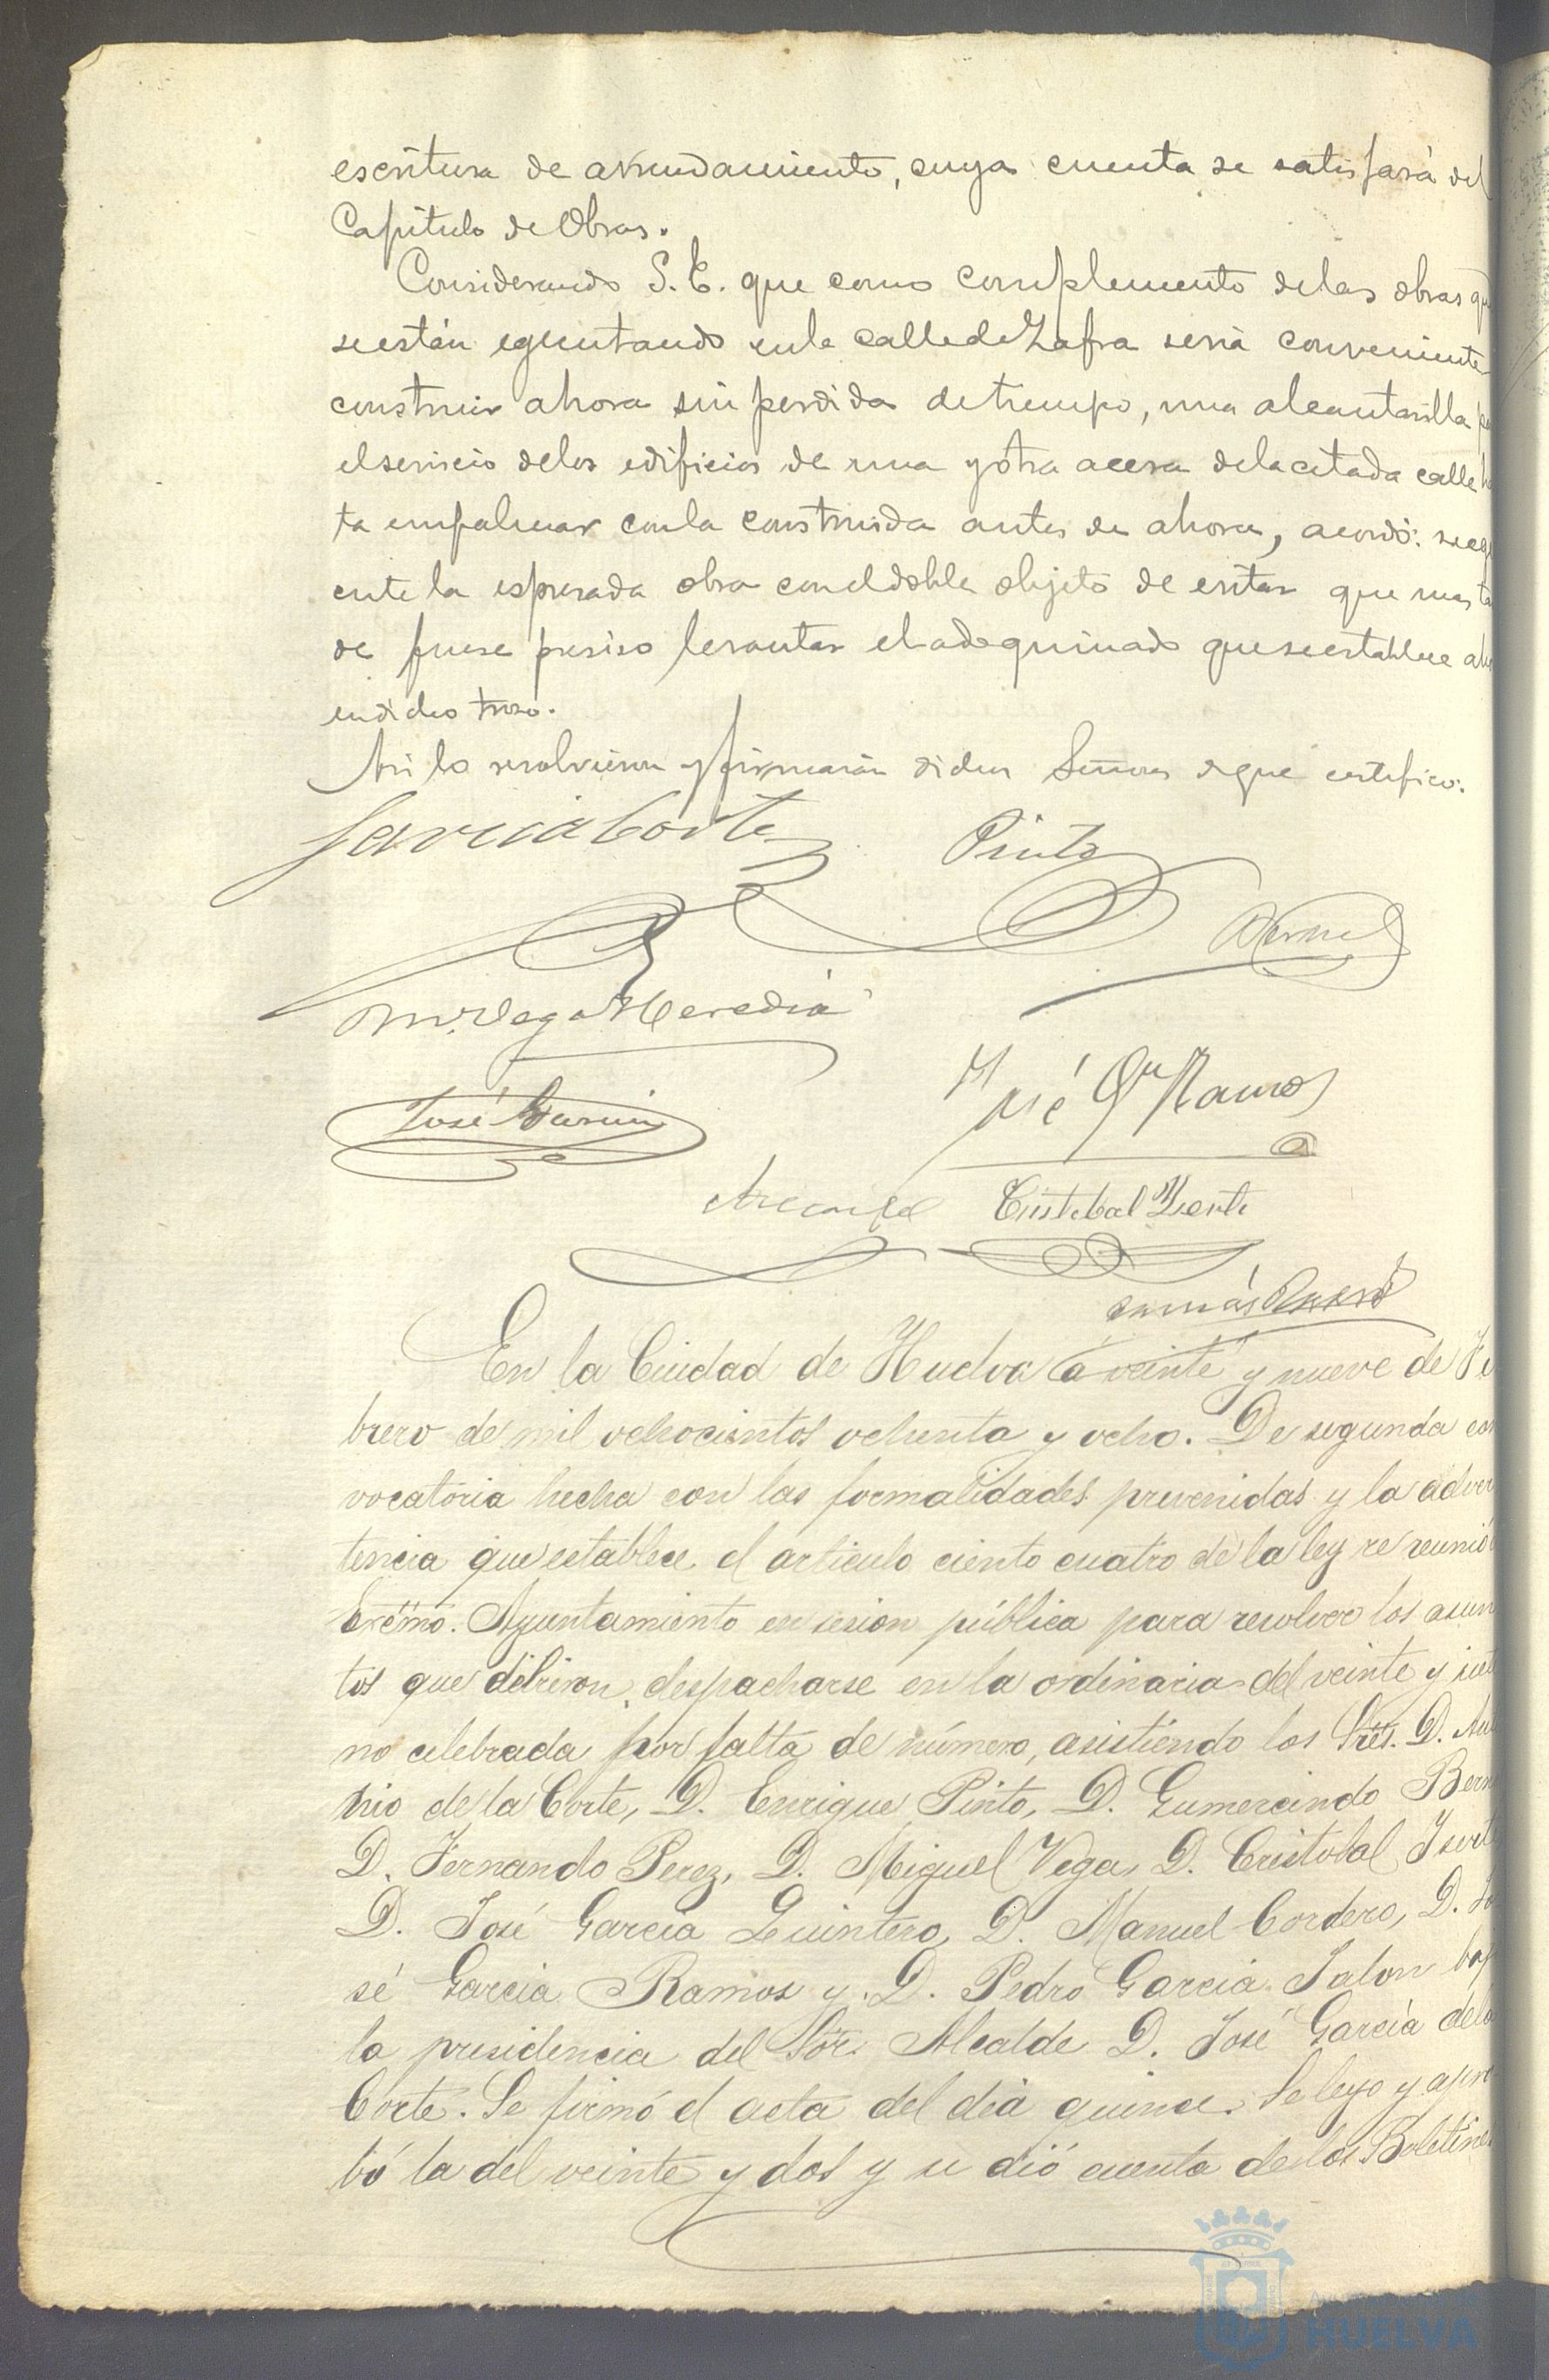 escritura de arrendamiento, cuya cuenta se satisfará del
Capitulo de Obras.
Considerando S. E. que como complemento delas obras q
se están egecutando enla calle de Zafra seria conveniente
construir ahora sin perdida de tiempo, una alcantarilla p
el servicio delos edificios de una y otra acera dela citada calle h
ta empalmar conla construida antes de ahora, acordó: se eg
cute la espresada obra con el doble objeto de evitar que mas ta
de fuese preciso levantar el adoquinado que se establece aho
en dicho trozo.
Asi lo resolvieron y firmarán dichos Señores de que certifico.
Garcia Corte
Pinto
Bernal
M. Vega Heredia
José Garcia
José Ga Ramos
Cristobal
Tomás
En la Ciudad de Huelva á veinte y nueve de Fe
brero de mil ochocientos ochenta y ocho. De segunda con
vocatória hecha con las formalidades prevenidas y la adver
tencia que establece el articulo ciento cuatro de la ley se reunió
Excmo. Ayuntamiento en sesion pública para resolver los asun
tos que debieron despacharse en la ordinaria del veinte y siet
no celebrada por falta de número, asistiendo los Sres. D. An
nio de la Corte, D. Enrique Pinto, D. Gumersindo Bern
D. Fernando Perez, D. Miguel Vega, D. Cristobal Ysert
D. José Garcia Quintero, D. Manuel Cordero, D. Jo
sé Garcia Ramos y D. Pedro Garcia Jalon baj
la presidencia del Sor. Alcalde D. José Garcia dela
Corte. Se firmó el acta del dia quince. Se leyo y apro
bó la del veinte y dos y se dió cuenta de los Boletines
HUELVA